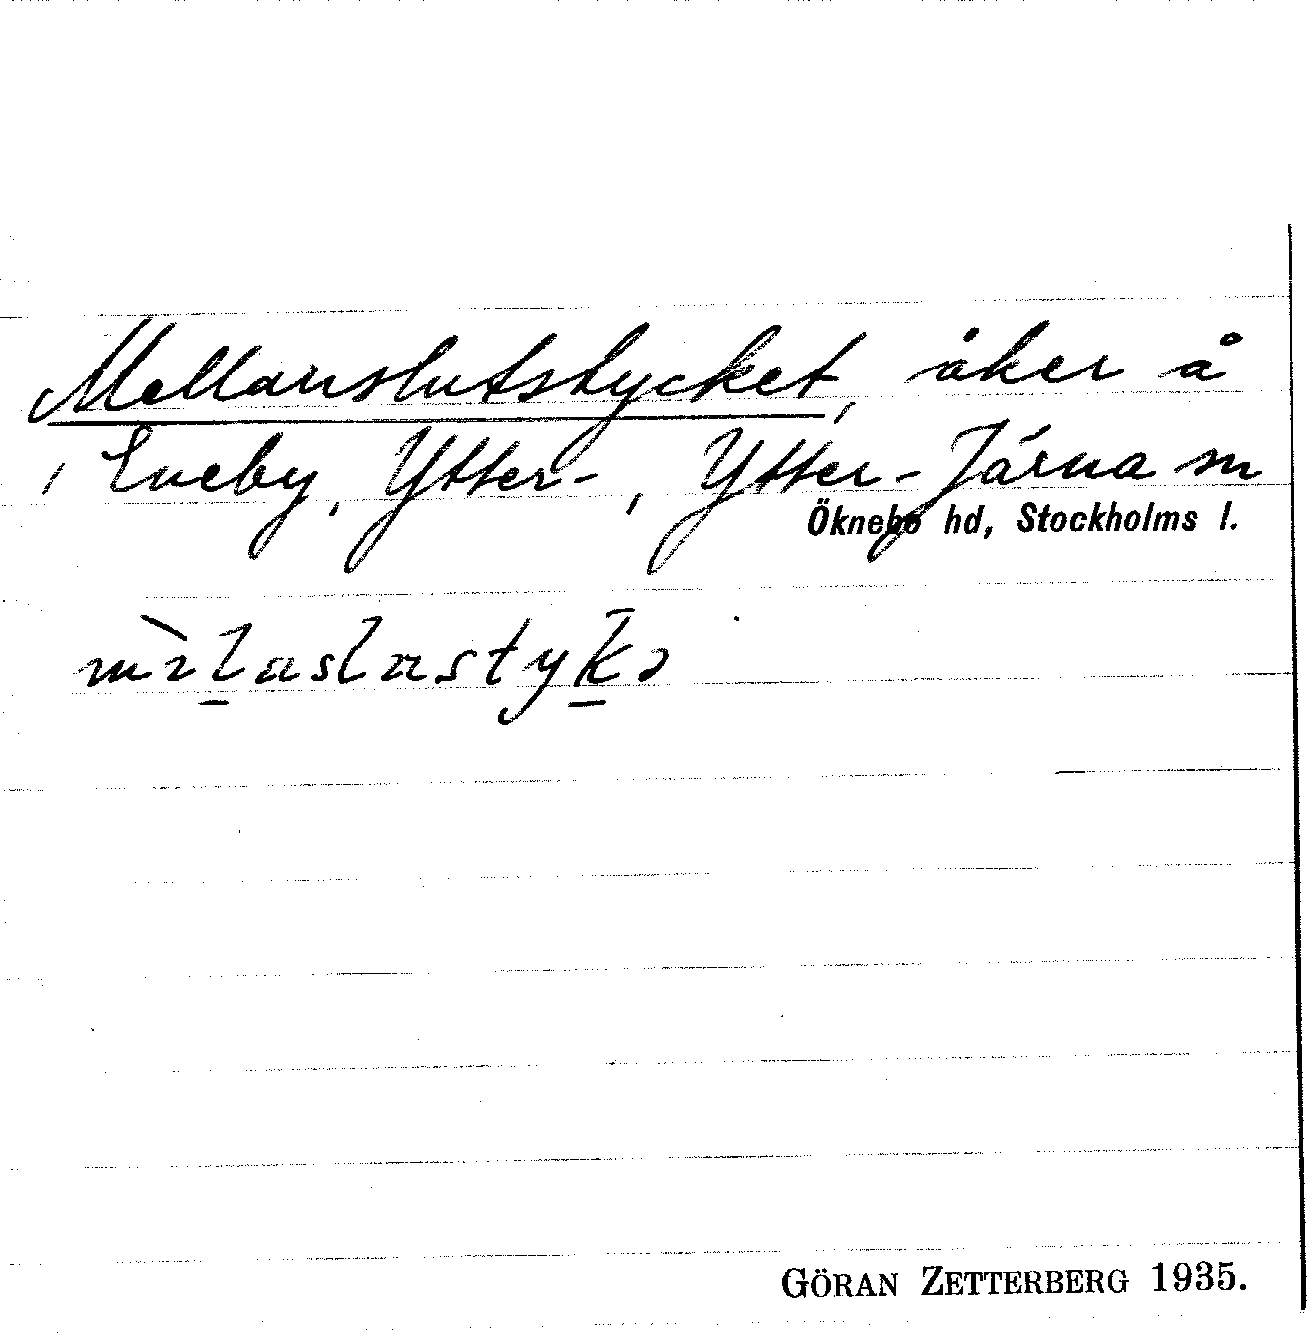 Mellanslutstycket, åker å
, Eneby, Ytter-, Ytter-Järna sn
Öknebo hd, Stockholms l.
GÖRAN ZETTERBERG 1935.